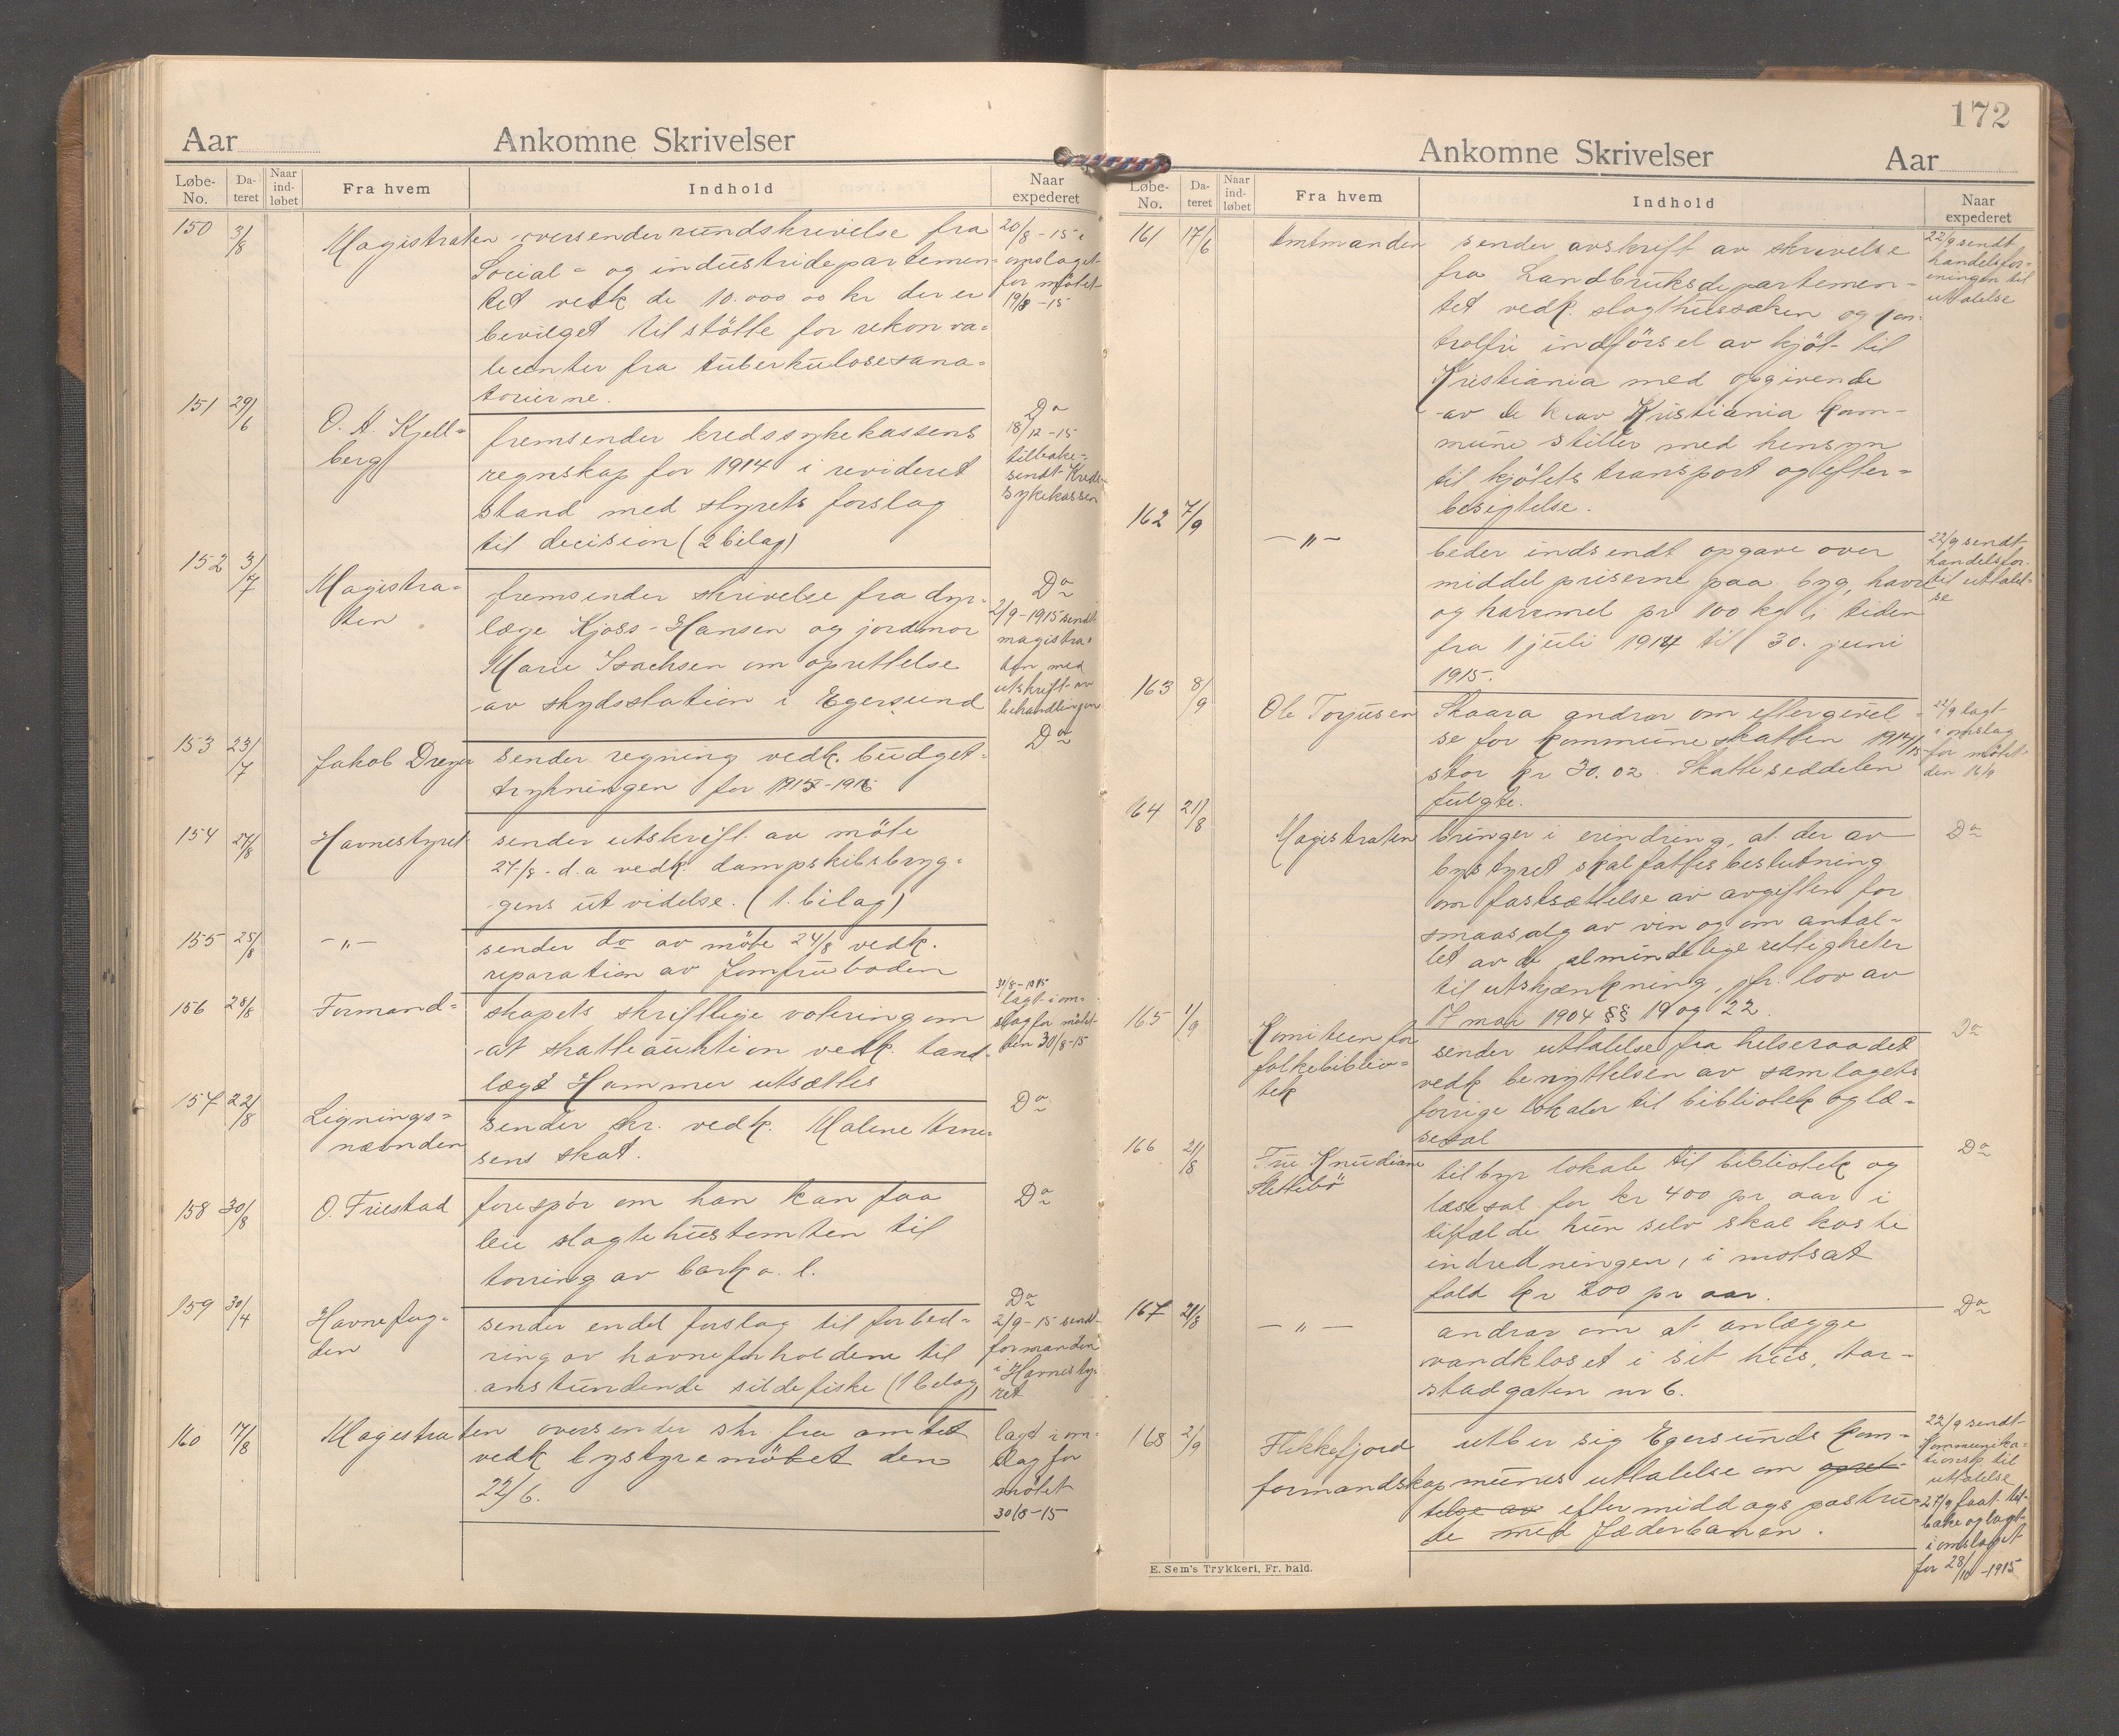 Aar
Ankomne Skrivelser
Løbe-No.
Da-teret
Naar ind-løbet
Fra hvem
Indhold
Naar expederet
150 3/8 Magistraten oversender rundskrivelse fra
Social- og industridepartemen-
tet vedk de 10.000 00 kr der er
bevilget til stötte for rekonva-
lecenter fra tuberkulosesana-
torierne.
20/8 - 15 i
omslaget
for mötet
19/8 - 15
151 29/6 O. A. Kjell-
berg
fremsender kredssykekassens
regnskap for 1914 i revideret
stand med styrets forslag
til decision (2 bilag)
Do
18/12 - 15
tilbake-
sendt Kreds-
sykekassen
152 3/7 Magistra-
ten
fremsender skrivelse fra dyr-
læge Kjoss-Hansen og jordmor
Marie Isachsen om oprettelse
av skydsstation i Egersund
Do
2/9 - 1915 sendt
magistra-
ten med
utskrift av
behandlingen
153 23/7 Jakob Dreyer
sender regning vedk. budget-
trykningen for 1915-1916
Do
154 27/8 Havnestyret
sender utskrift av möte
27/8 - d.a vedk. dampskibsbryg-
gens utvidelse. (1. bilag)
155 25/8 - " -
sender do av möte 24/8 vedk.
reparation av Jomfruboden
156 28/8 Formand-
skapets skriftlige votering om
at skatteauktion vedk. tand-
læge Hammer utsættes
31/8 - 1915
lagt i om-
slag for mötet
den 30/8 - 15
157 22/8 Lignings-
nævnden
sender skr. vedk. Malene Arne-
sens skat.
Do
158 30/8 O. Friestad
forespör om han kan faa
leie slagtehustomten til
torring av bark o. l.
Do
159 30/4 Havnefog-
den
sender endel forslag til forbed-
ring av havneforholdene til
anstundende sildefiske (1 bilag)
Do
2/9 - 15 sendt
formanden
i Havnesty-
ret
160 17/8 Magistraten oversender skr. fra amtet
vedk bystyremötet den
22/6.
lagt i om-
slag for
mötet
30/8 - 15
172
Ankomne Skrivelser
Aar
Løbe-No.
Da-teret
Naar ind-løbet
Fra hvem
Indhold
Naar expederet
161 17/6 Amtmanden sender avskrift av skrivelse
fra Landbruksdepartemen-
tet vedk. slagthussaken og kon-
trolfri indförsel av kjöt til
Kristiania med opgivende
av de krav Kristiania kom-
mune stiller med hensyn
til kjötets transport og efter-
besigtelse.
22/9 sendt
handelsfor-
eningen til
uttalelse
162 7/9 - " -
beder indsendt opgave over
middelpriserne paa byg, havre
og havremel pr 100 kg i tiden
fra 1 juli 1914 til 30. juni
1915.
22/9 sendt
handelsfor.
til uttalel-
se
163 8/9 Ole Torjusen Skaara andrar om eftergivel-
se for kommuneskatten 1914/15
stor kr 30.02. Skatteseddelen
fulgte.
22/9 lagt
i omslag
for mötet
den 16/9
164 21/8 Magistraten bringer i erindring, at der av
bystyret skal fattes beslutning
om fastsættelse av avgiften for
smaasalg av vin og om antal-
let av de almindelige rettigheter
til utskjænkning, jfr. lov av
17 mai 1904 §§ 19 og 22.
Do
165 1/9 Komiteen for
folkebiblio-
tek
sender uttalelse fra helseraadet
vedk benyttelsen av samlagets
forrige lokaler til bibliotek og læ-
sesal
Do
166 21/8 Fru Knudiane
Slettebö
tilbyr lokale til bibliotek og
læsesal for kr 400 pr aar i
tilfælde hun selv skal koste
indredningen, i motsat
fald kr 300 pr aar.
Do
167 21/8 - " -
andrar om at anlægge
vandkloset i sit hus, Aar-
stadgaten nr 6.
Do
168 2/9 Flekkefjord
formandskap
utber sig Egersunds kom-
munes uttalelse om opret-
telse av eftermiddags postru-
te med Jæderbanen.
22/9 sendt
kommunika-
tionsk. til
uttalelse
27/9 faat til-
bake og lagt
i omslaget
for 28/10 - 1915
E. Sem's Trykkeri, Fr. hald.